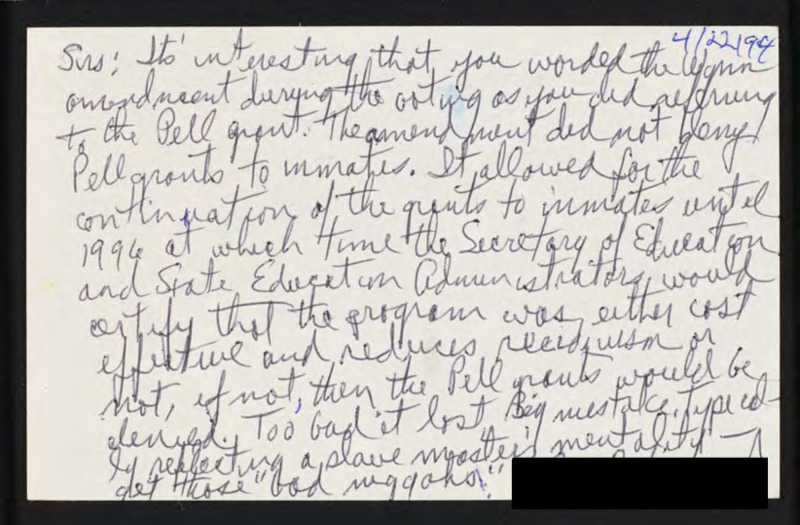 4/22/94
Sirs: Its' interesting that, you worded the Wynn
amendment during the voting as you did referring
to the Pell grant. The amendment did not deny
Pell grants to inmates. It allowed for the
continuation of the grants to inmates until
1996 at which time the Secretary of Education
and State Education Administrators, would
certify that the program was either cost
effective and reduces recidivism or
not, if not, then the Pell grants would be
denied. Too bad it lost. Big mistake, typical-
ly reflecting a slave master's mentality —
get those "bad niggahs."